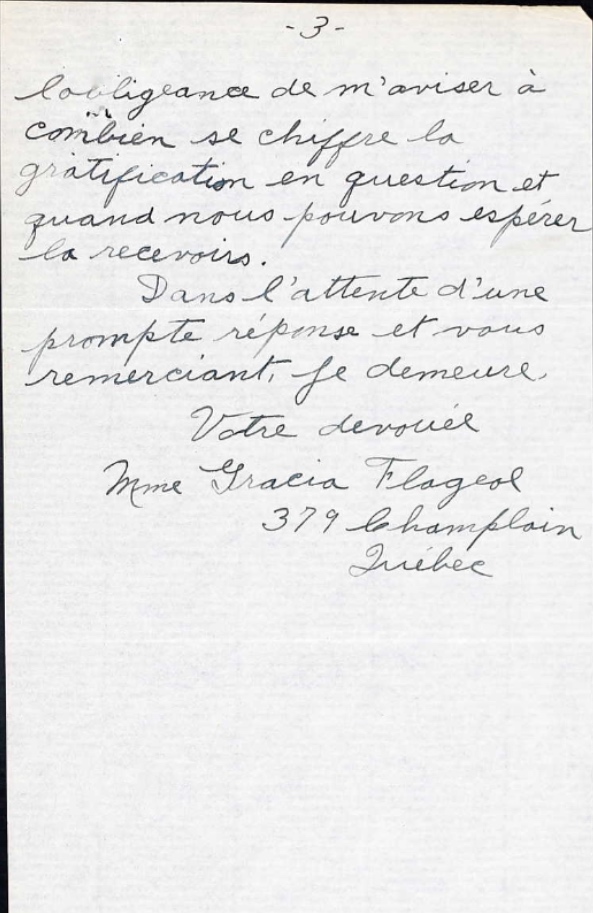 -3-
l'obligeance de m'aviser à
combien se chiffre la
gratification en question et
quand nous pouvons espérer
la recevoirs.
Dans l'attente d'une
prompte réponse et vous
remerciant, je demeure,
Votre dévouée
Mme Gracia Flageol
379 Champlain
Québec